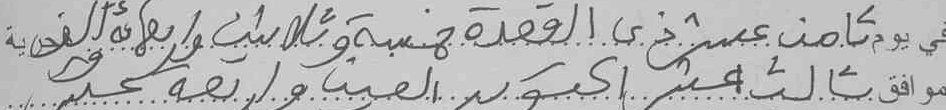 في يوم ثامن عشر ذي القعدة خمسة وثلاثين واربعمائة الهجرية
موافق ثالث عشر اكتوبر الفين واربعة عشر